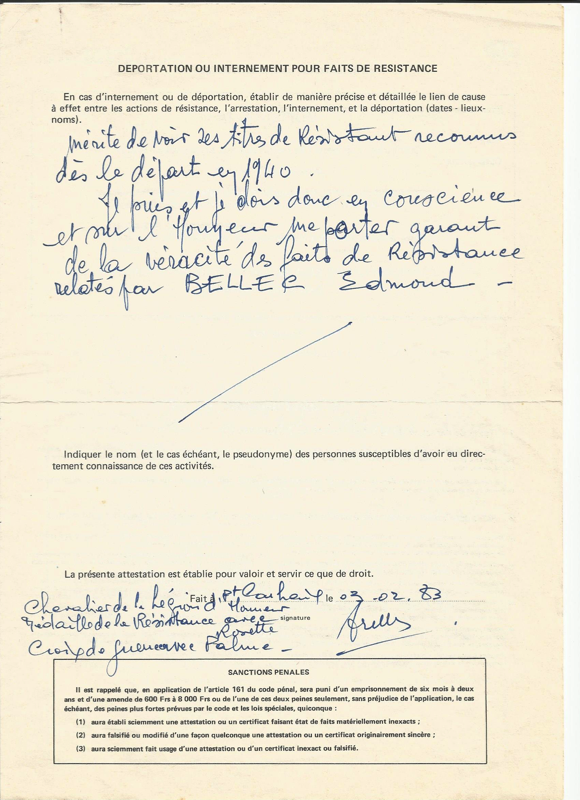 DEPORTATION OU INTERNEMENT POUR FAITS DE RESISTANCE
En cas d'internement ou de déportation, établir de manière précise et détaillée le lien de cause
à effet entre les actions de résistance, l'arrestation, l'internement, et la déportation (dates - lieux-
noms).
mérite de voir ses titres de Résistant reconnus
dès le départ en 1940.
Je puis et je dois donc en conscience
et sur l'Honneur me porter garant
de la véracité des faits de Résistance
relatés par BELLEC Edmond -
Indiquer le nom (et le cas échéant, le pseudonyme) des personnes susceptibles d'avoir eu direc-
tement connaissance de ces activités.
La présente attestation est établie pour valoir et servir ce que de droit.
Fait à, le 03.02.83
Chevalier de la Légion d'Honneur
Médaille de la Résistance avec signature
Rosette
Croix de Guerre avec Palme -
SANCTIONS PENALES
Il est rappelé que, en application de l'article 161 du code pénal, sera puni d'un emprisonnement de six mois à deux
ans et d'une amende de 600 Frs à 8 000 Frs ou de l'une de ces deux peines seulement, sans préjudice de l'application, le cas
échéant, des peines plus fortes prévues par le code et les lois spéciales, quiconque :
(1) aura établi sciemment une attestation ou un certificat faisant état de faits matériellement inexacts ;
(2) aura falsifié ou modifié d'une façon quelconque une attestation ou un certificat originairement sincère ;
(3) aura sciemment fait usage d'une attestation ou d'un certificat inexact ou falsifié.